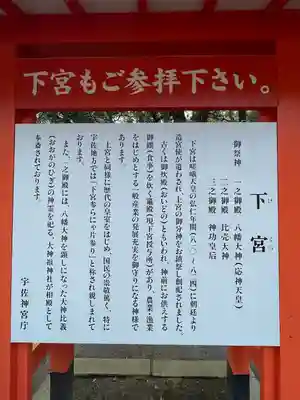 下宮もご参拝下さい。
下宮
御祭神
一之御殿 八幡大神(応神天皇)
二之御殿 比売大神
三之御殿 神功皇后
下宮は嵯峨天皇の弘仁年間(八一〇~八二四)に朝廷より
造宮使が遣わされ、上宮の御分神をお鎮祭し創祀されました。
古くは御炊殿(おいどの)ともいわれ、神前にお供えする
御饌(食事)を炊く竈殿(現下宮授与所)があり、農業・漁業
をはじめとする一般産業の発展充実を御守りになる神様で
あります。
上宮と同様に歴代の皇室をはじめ、国民の崇敬篤く、特に
宇佐地方では「下宮参らにゃ片参り」と称され親しまれて
おります。
また、一之御殿には、八幡大神を顕しになった大神比義
(おおがのひぎ)の神霊を祀る、大神祖神社が相殿として
奉斎されております。
宇佐神宮庁